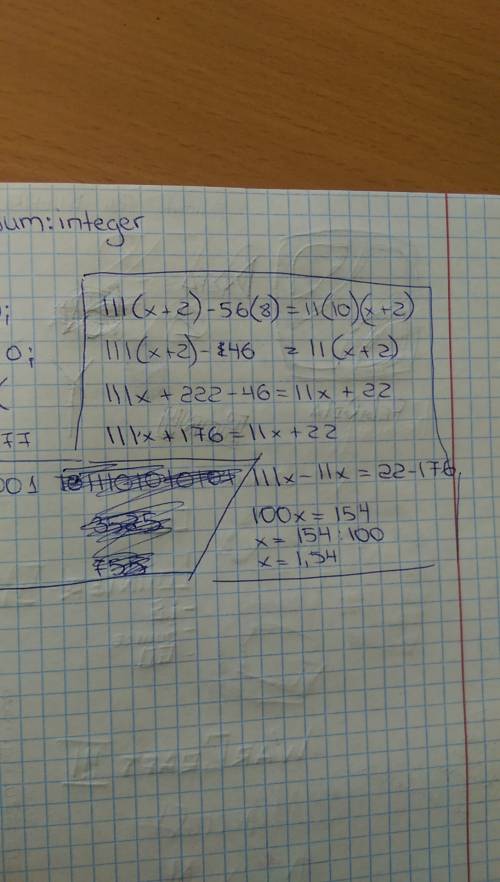 sum:integer
0;
111(x+2)-56(8)=11(10)(x+2)
0;
111(x+2)-46 =11(x+2)
111x+222-46=11x+22
77
111x+176=11x+22
001
111x-11x=22-176
100x=154
x=154:100
x=1,54